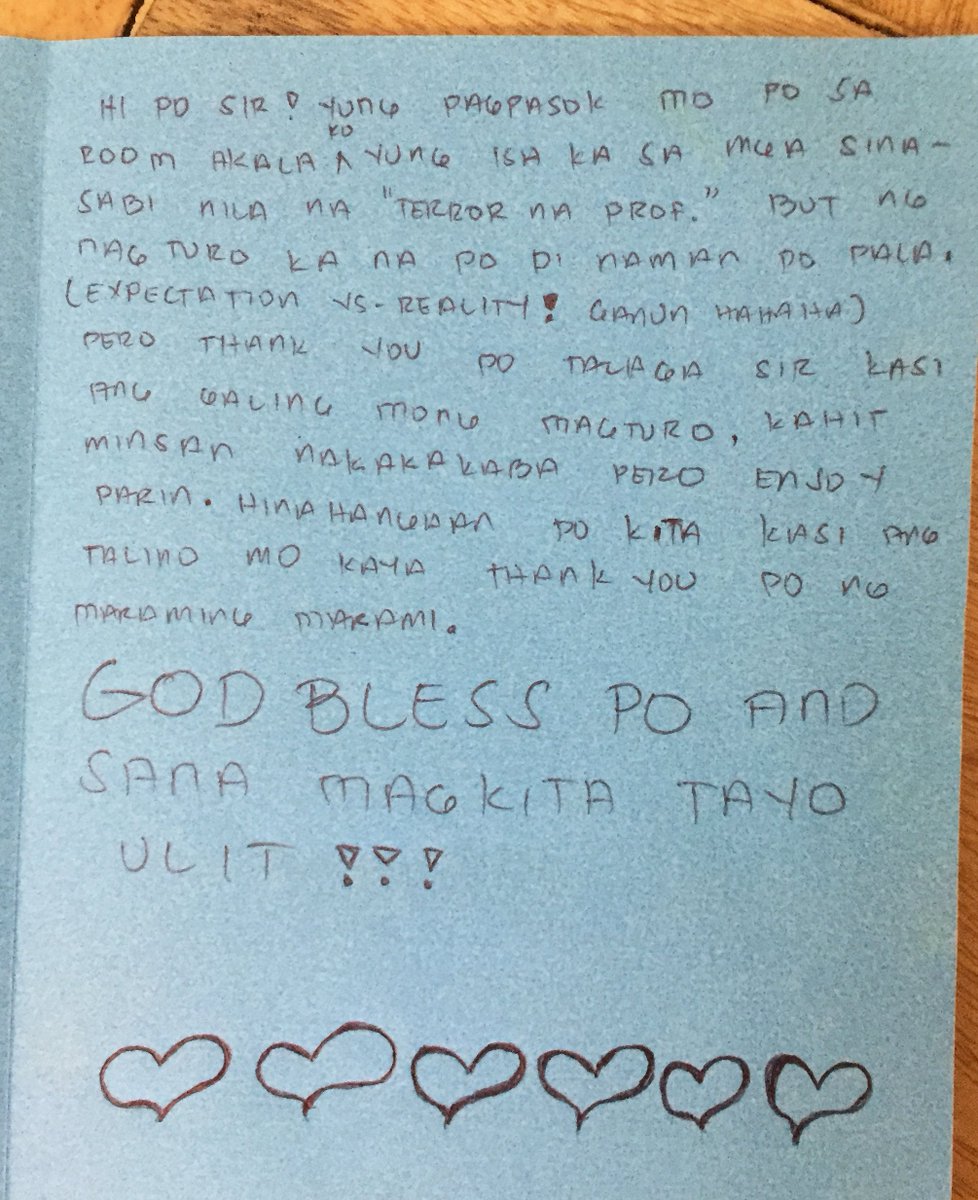 HI PO SIR! YUNG PAGPASOK MO PO SA
ROOM AKALA KO YUNG ISA KA SA MGA SINA-
SABI NILA NA "TERROR NA PROF." BUT NG
NAG TURO KA NA PO DI NAMAN PO PALA.
(EXPECTATION VS. REALITY! GANUN HAHAHA)
PERO THANK YOU PO TALAGA SIR KASI
ANG GALING MONG MAGTURO, KAHIT
MINSAN NAKAKAKABA PERO ENJOY
PARIN. HINAHANGAAN PO KITA KASI ANG
TALINO MO KAYA THANK YOU PO NG
MARAMING MARAMI.
GOD BLESS PO AND
SANA MAGKITA TAYO
ULIT !!!